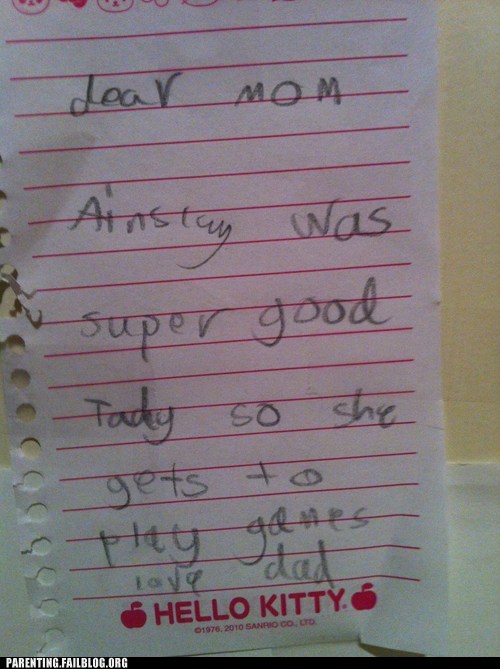 dear MOM
Ainslay was
super good
Tady so she
gets to
play games
love dad
HELLO KITTY®
©1976, 2010 SANRIO CO., LTD.
PARENTING.FAILBLOG.ORG